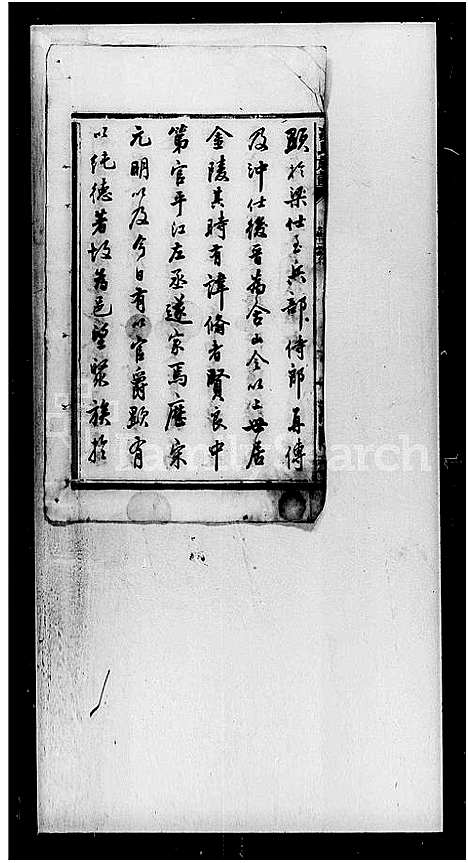 顯於梁仕至兵部侍郎再傳
及沖仕後晉為含山令以父母居
金陵其時有諱脩者賢良中
第官平江左丞遂家焉歷宋
元明以及今日有以官爵顯有
以純德著故為邑望衆族於
FamilySearch